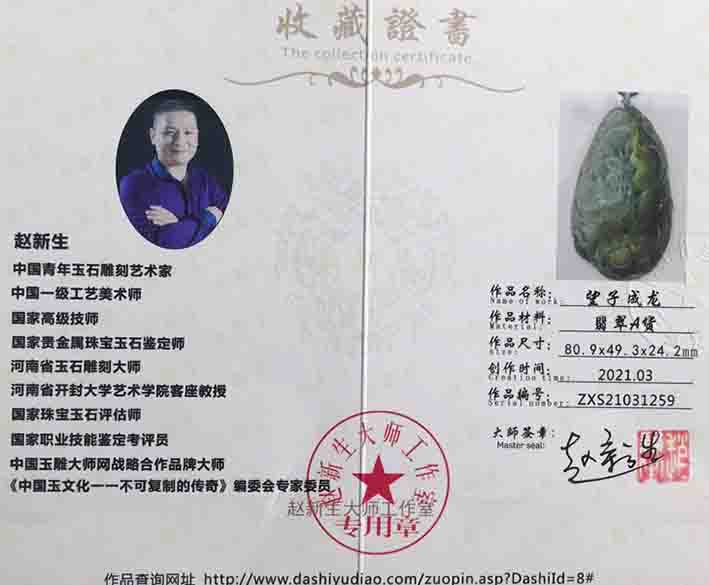 收藏證書
The collection certificate
赵新生
中国青年玉石雕刻艺术家
中国一级工艺美术师
国家高级技师
国家贵金属珠宝玉石鉴定师
河南省玉石雕刻大师
河南省开封大学艺术学院客座教授
国家珠宝玉石评估师
国家职业技能鉴定考评员
中国玉雕大师网战略合作品牌大师
《中国玉文化一一不可复制的传奇》编委会专家委员
作品名称： 望子成龙
Name of work:
作品材料： 翡翠A货
Material:
作品尺寸： 80.9x49.3x24.2mm
Size:
创作时间： 2021.03
Creation time:
作品编号： ZXS21031259
Serial number:
大師签章： 赵新生
Master seal:
赵新生大师工作室
专用章
赵新生大师工作室
作品查询网址 http://www.dashiyudiao.com/zuopin.asp?DashiId=8#